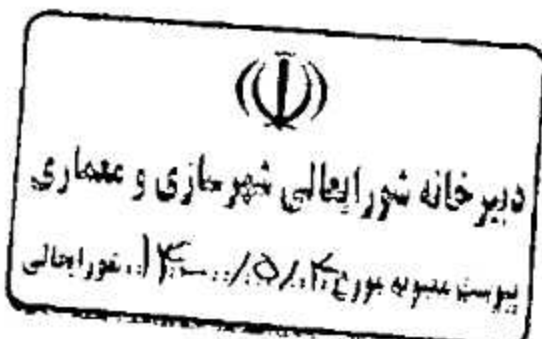 دبیرخانه شورایعالی شهرسازی و معماری
پیوست مصوبه مورخ ۱۴۰۰/۵/۴ شورایعالی